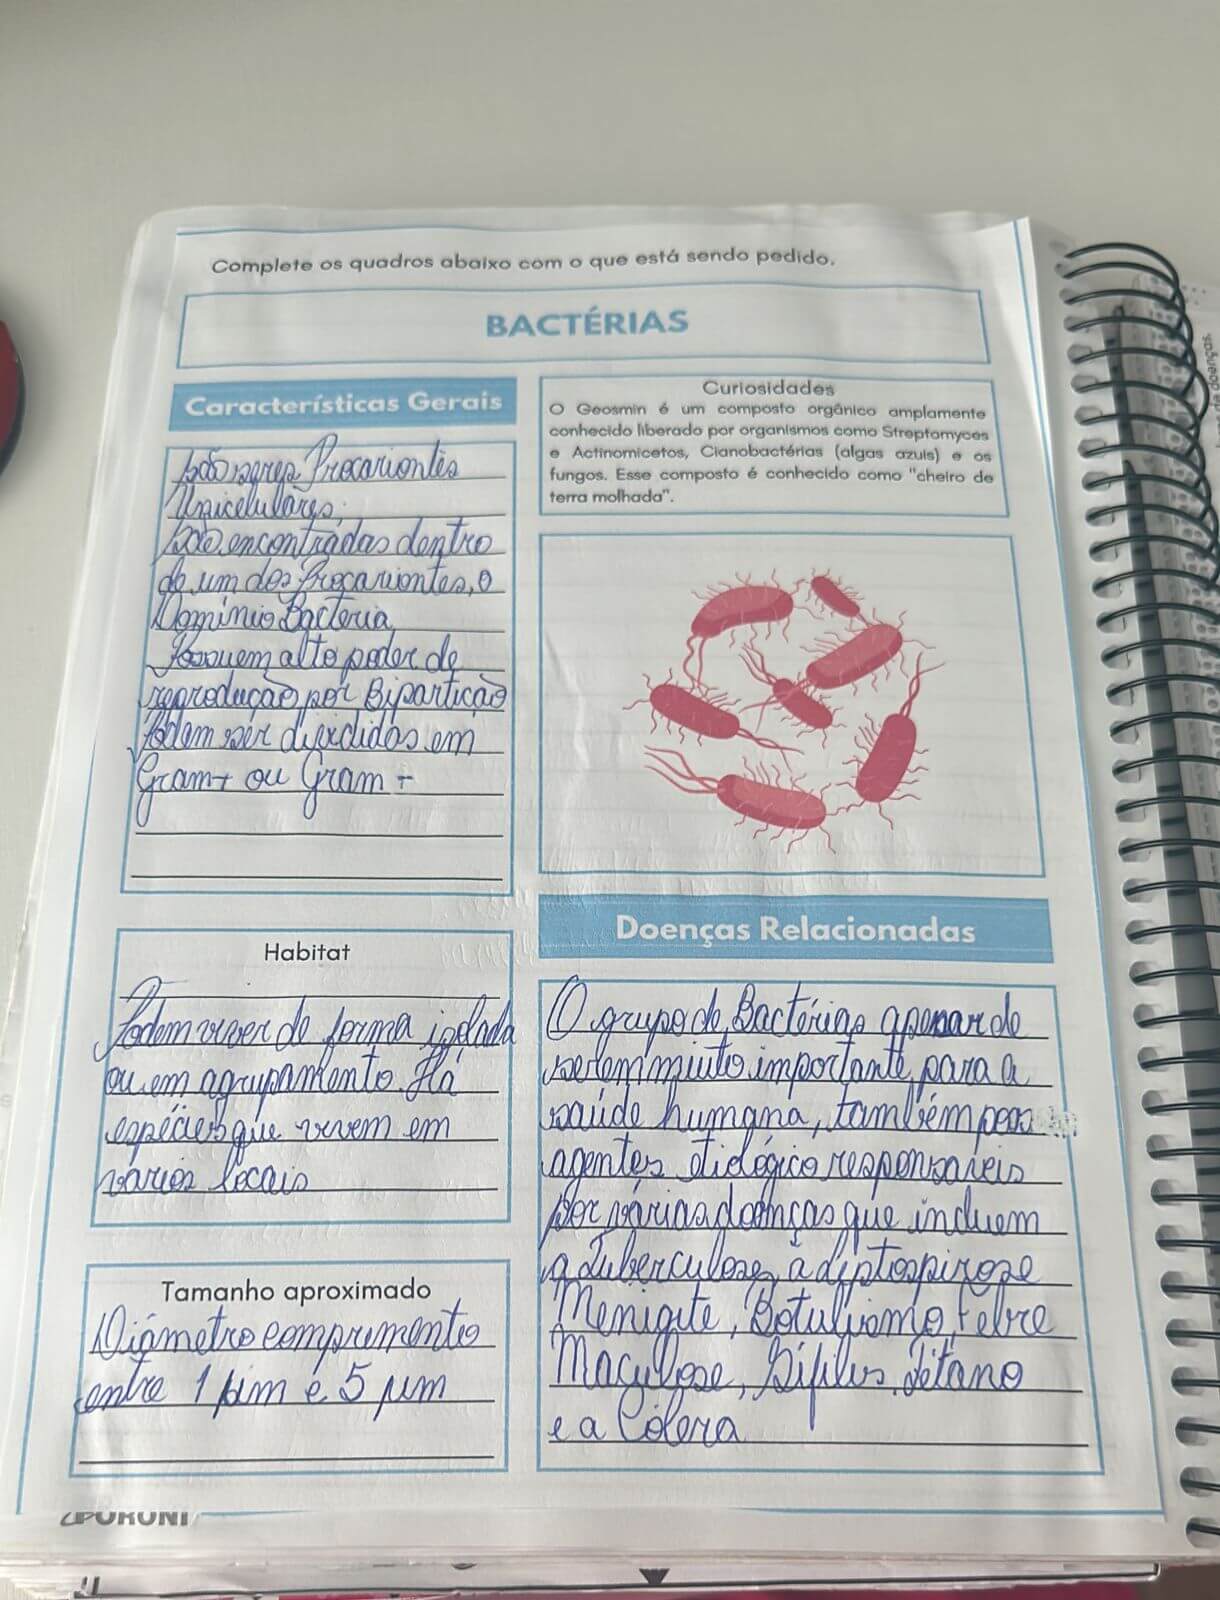 Complete os quadros abaixo com o que está sendo pedido.
BACTÉRIAS
Características Gerais
São seres Procariontes
Unicelulares.
São encontradas dentro
de um dos Procariontes, o
Domínio Bacteria
Possuem alto poder de
reprodução por Bipartição
Podem ser divididas em
Gram+ ou Gram -
Curiosidades
O Geosmin é um composto orgânico amplamente
conhecido liberado por organismos como Streptomyces
e Actinomicetos, Cianobactérias (algas azuis) e os
fungos. Esse composto é conhecido como "cheiro de
terra molhada".
Habitat
Podem viver de forma isolada
ou em agrupamento. Há
espécies que vivem em
varios locais
Tamanho aproximado
Diâmetro comprimento
entre 1 µm e 5 µm
Doenças Relacionadas
O grupo de Bactérias apesar de
serem muito importante para a
saúde humana, também
agentes etiológico responsaveis
por várias doenças que incluem
a Tuberculose, a Leptospirose
Menigite, Botulismo, Febre
Maculose, Sífilis, Tétano
e a Cólera
de doenças.